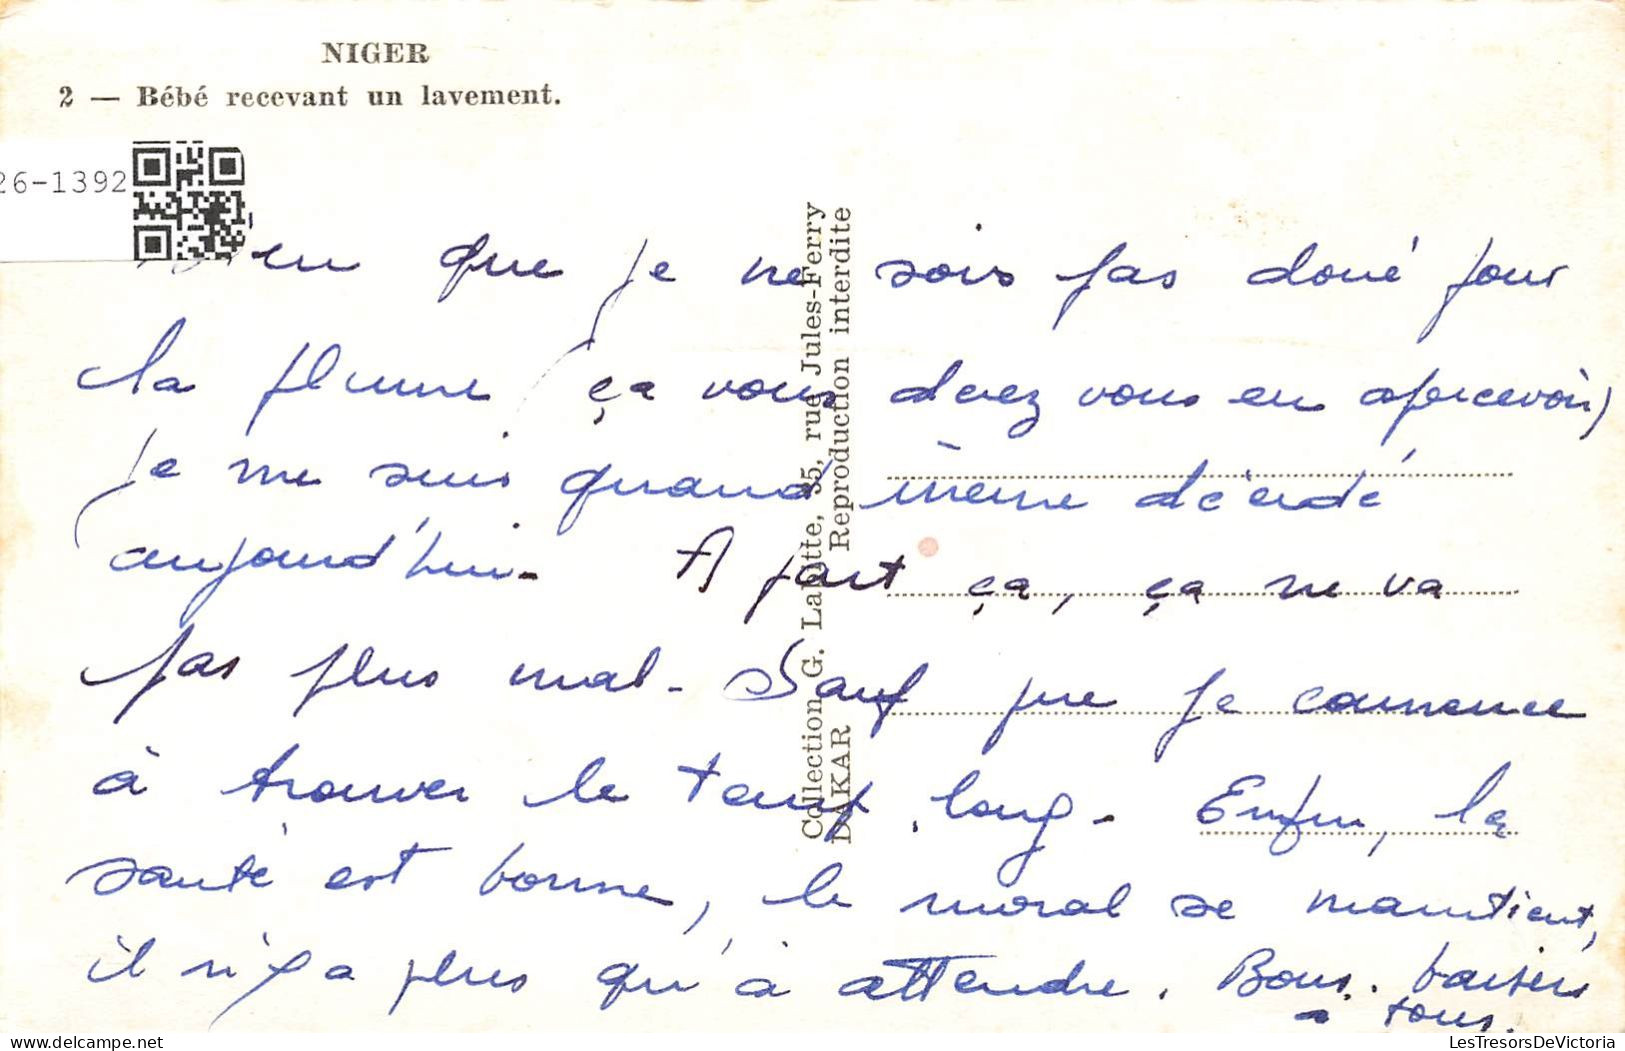 NIGER
2 — Bébé recevant un lavement.
26-1392
Bien que je ne sois pas doué pour
la plume (ça vous devez vous en apercevoir)
je me suis quand même décidé
aujourd'hui. A part ça, ça ne va
pas plus mal. Sauf que je commence
à trouver le temps long. Enfin, la
santé est bonne, le moral se maintient,
il n'y a plus qu'à attendre. Bons baisers
à tous.
Collection G. Labitte, 35, rue Jules-Ferry
DAKAR Reproduction interdite
LesTresorsDeVictoria